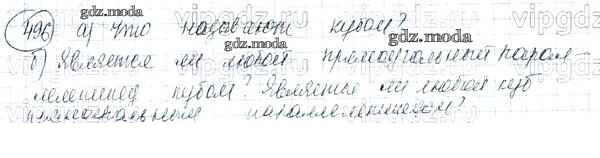 496 а) Что называют кубом?
б) Является ли любой прямоугольный парал-
лелепипед кубом? Является ли любой куб
прямоугольным параллелепипедом?
gdz.moda
gdz.moda
gdz.moda
gdz.moda
vipgdz
vipgdz
vipgdz